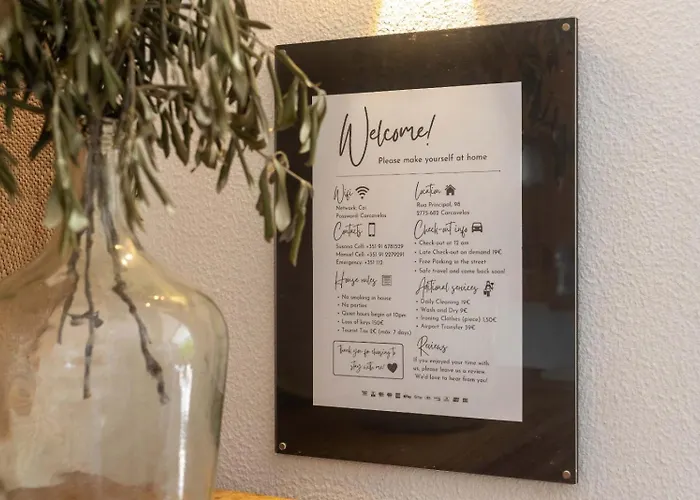 Welcome!
Please make yourself at home
Wifi
Network: Csi
Password: Carcavelos
Contacts
Susana Cell: +351 91 6781529
Manuel Cell: +351 91 2279291
Emergency: +351 112
House rules
• No smoking in house
• No parties
• Quiet hours begin at 10pm
• Loss of keys 150€
• Tourist Tax 2€ (max. 7 days)
thank you for choosing to
stay with me!
Location
Rua Principal, 98
2775-662 Carcavelos
Check-out info
• Check-out at 12 am
• Late Check-out on demand 19€
• Free Parking in the street
• Safe travel and come back soon!
Aditional services
• Daily Cleaning 19€
• Wash and Dry 9€
• Ironing Clothes (piece) 1,50€
• Airport Transfer 39€
Reviews
If you enjoyed your time with
us, please leave us a review.
We'd love to hear from you!